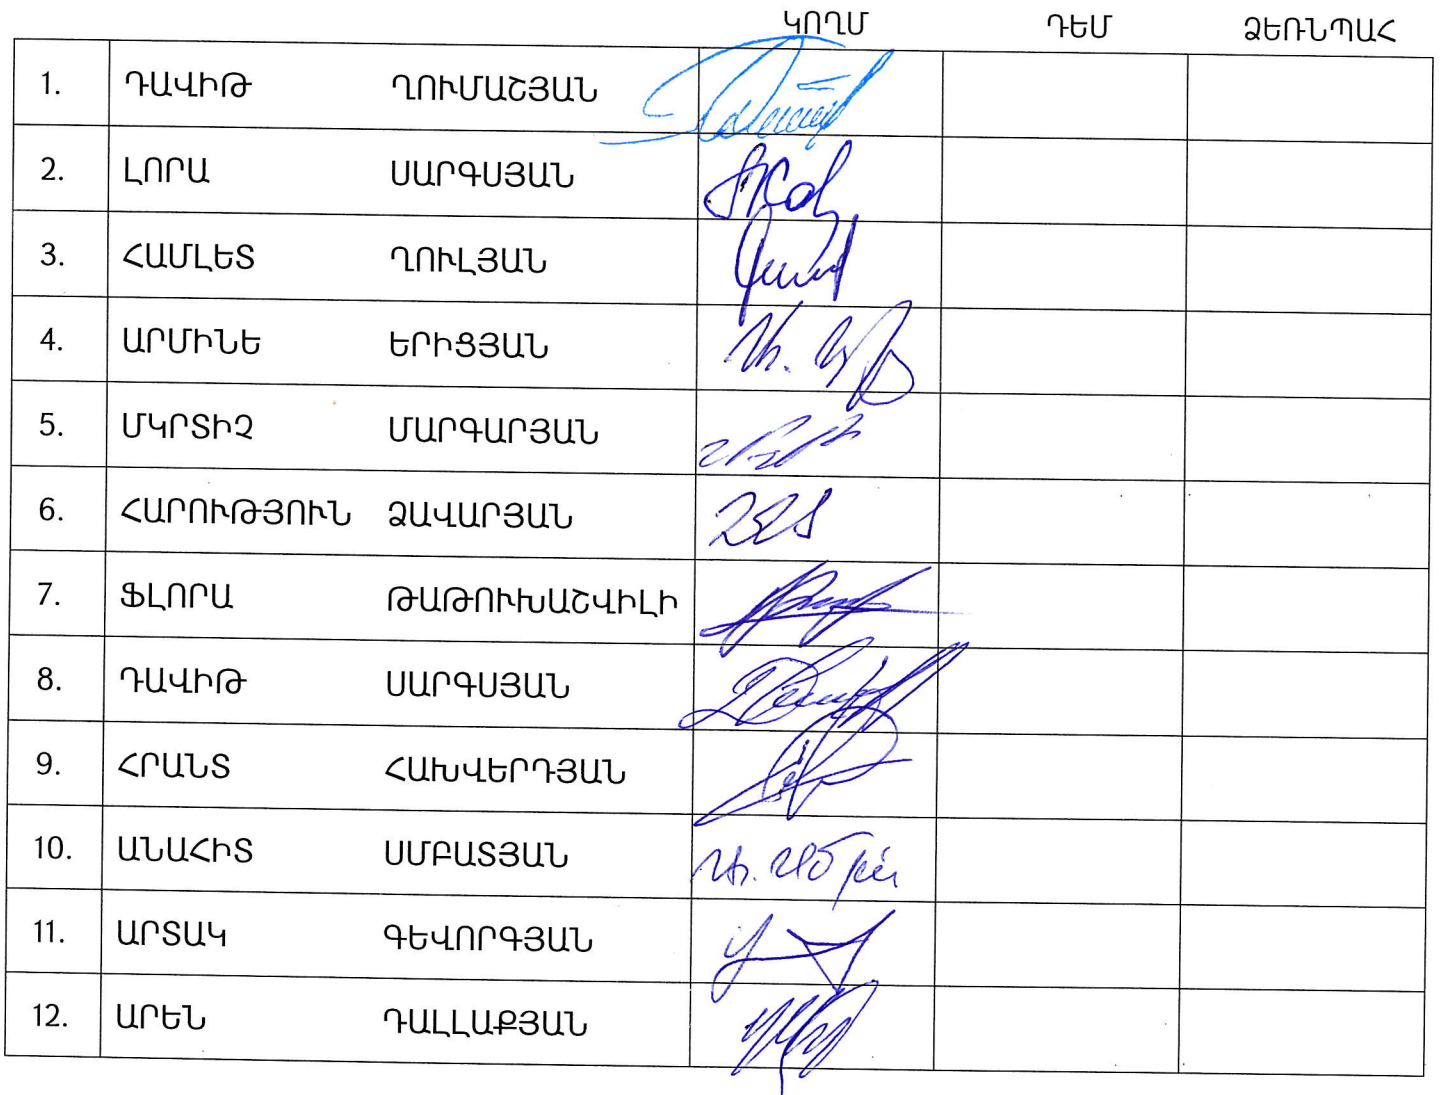 ԿՈՂՄ ԴԵՄ ՁԵՌՆՊԱՀ
1. ԴԱՎԻԹ ՂՈՒՄԱՇՅԱՆ
2. ԼՈՐԱ ՍԱՐԳՍՅԱՆ
3. ՀԱՄԼԵՏ ՂՈՒԼՅԱՆ
4. ԱՐՄԻՆԵ ԵՐԻՑՅԱՆ
5. ՄԿՐՏԻՉ ՄԱՐԳԱՐՅԱՆ
6. ՀԱՐՈՒԹՅՈՒՆ ՁԱՎԱՐՅԱՆ
7. ՖԼՈՐԱ ԹԱԹՈՒԽԱՇՎԻԼԻ
8. ԴԱՎԻԹ ՍԱՐԳՍՅԱՆ
9. ՀՐԱՆՏ ՀԱԽՎԵՐԴՅԱՆ
10. ԱՆԱՀԻՏ ՍՄԲԱՏՅԱՆ
11. ԱՐՏԱԿ ԳԵՎՈՐԳՅԱՆ
12. ԱՐԵՆ ԴԱԼԼԱՔՅԱՆ